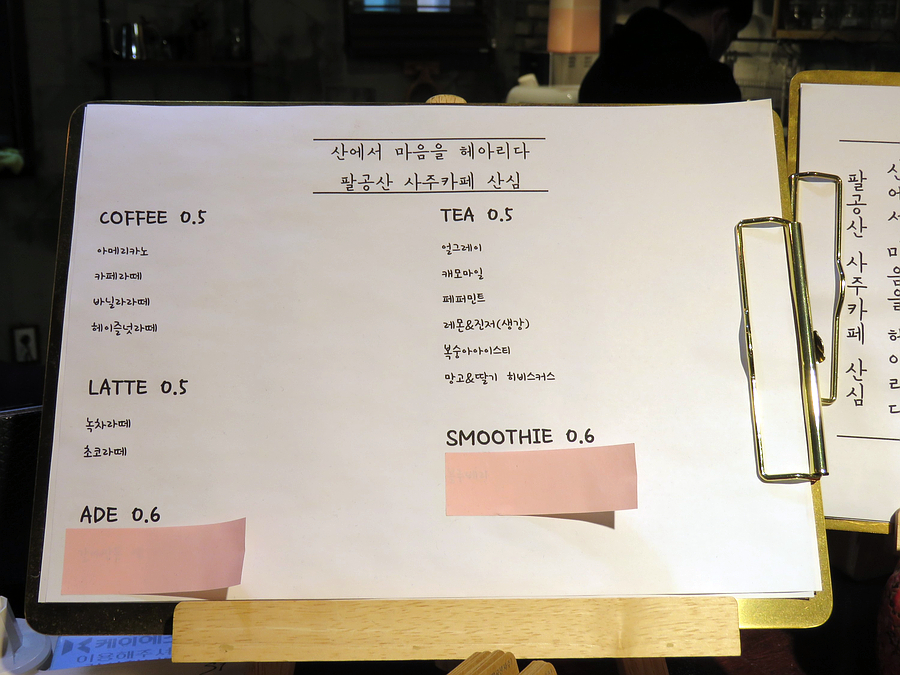 산에서 마음을 헤아리다
팔공산 사주카페 산심
COFFEE 0.5
아메리카노
카페라떼
바닐라라떼
헤이즐넛라떼
LATTE 0.5
녹차라떼
초코라떼
ADE 0.6
TEA 0.5
얼그레이
캐모마일
페퍼민트
레몬&진저(생강)
복숭아아이스티
망고&딸기 히비스커스
SMOOTHIE 0.6
산에서 마음을 헤아리다
팔공산 사주카페 산심
케이에
이용해주서